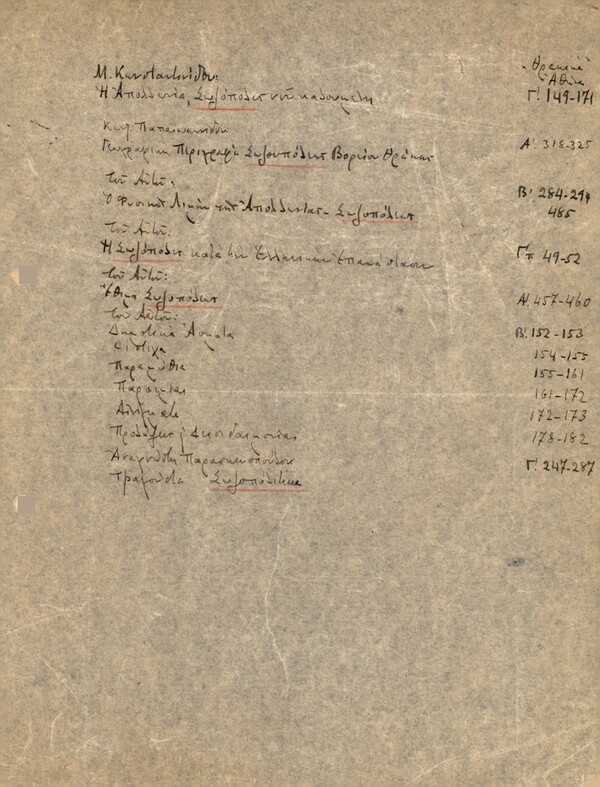 Μ. Κωνσταντινίδου: „Θρακικά"
Ἀθῆναι
Ἡ Ἀπολλωνία, Σωζόπολις νῦν καλουμένη Γ'. 149-171
Κωνστ. Παπαϊωαννίδου:
Γεωγραφικὴ Περιγραφὴ Σωζουπόλεως Βορείου Θράκης Α'. 318-325
τοῦ Αὐτοῦ:
Ὁ Φυσικὸς Λιμὴν τῆς Ἀπολλωνίας - Σωζοπόλεως Β' 284-294
485
τοῦ Αὐτοῦ:
Ἡ Σωζόπολις κατὰ τὴν Ἑλληνικὴν Ἐπανάστασιν 49-52
τοῦ Αὐτοῦ:
Ἔθιμα Σωζοπόλεως Α'. 457-460
τοῦ Αὐτοῦ:
Δημοτικὰ Ἄσματα Β'. 152-153
Δίστιχα 154-155
Παραμύθια 155-161
Παροιμίαι 161-172
Αἰνίγματα 172-173
Προλήψεις, Δεισιδαιμονίαι 178-182
Ἀναγνώστη Παρασκευοπούλου
Τραγούδια Σωζοπολίτικα Γ'. 247-287